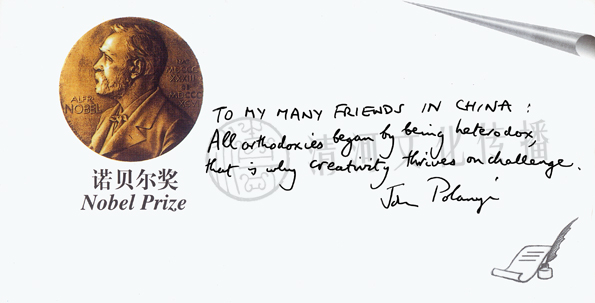 ALFR.
NOBEL
诺贝尔奖
Nobel Prize
TO MY MANY FRIENDS IN CHINA:
All orthodoxies began by being heterodox
that is why creativity thrives on challenge.
John Polanyi
文化传播